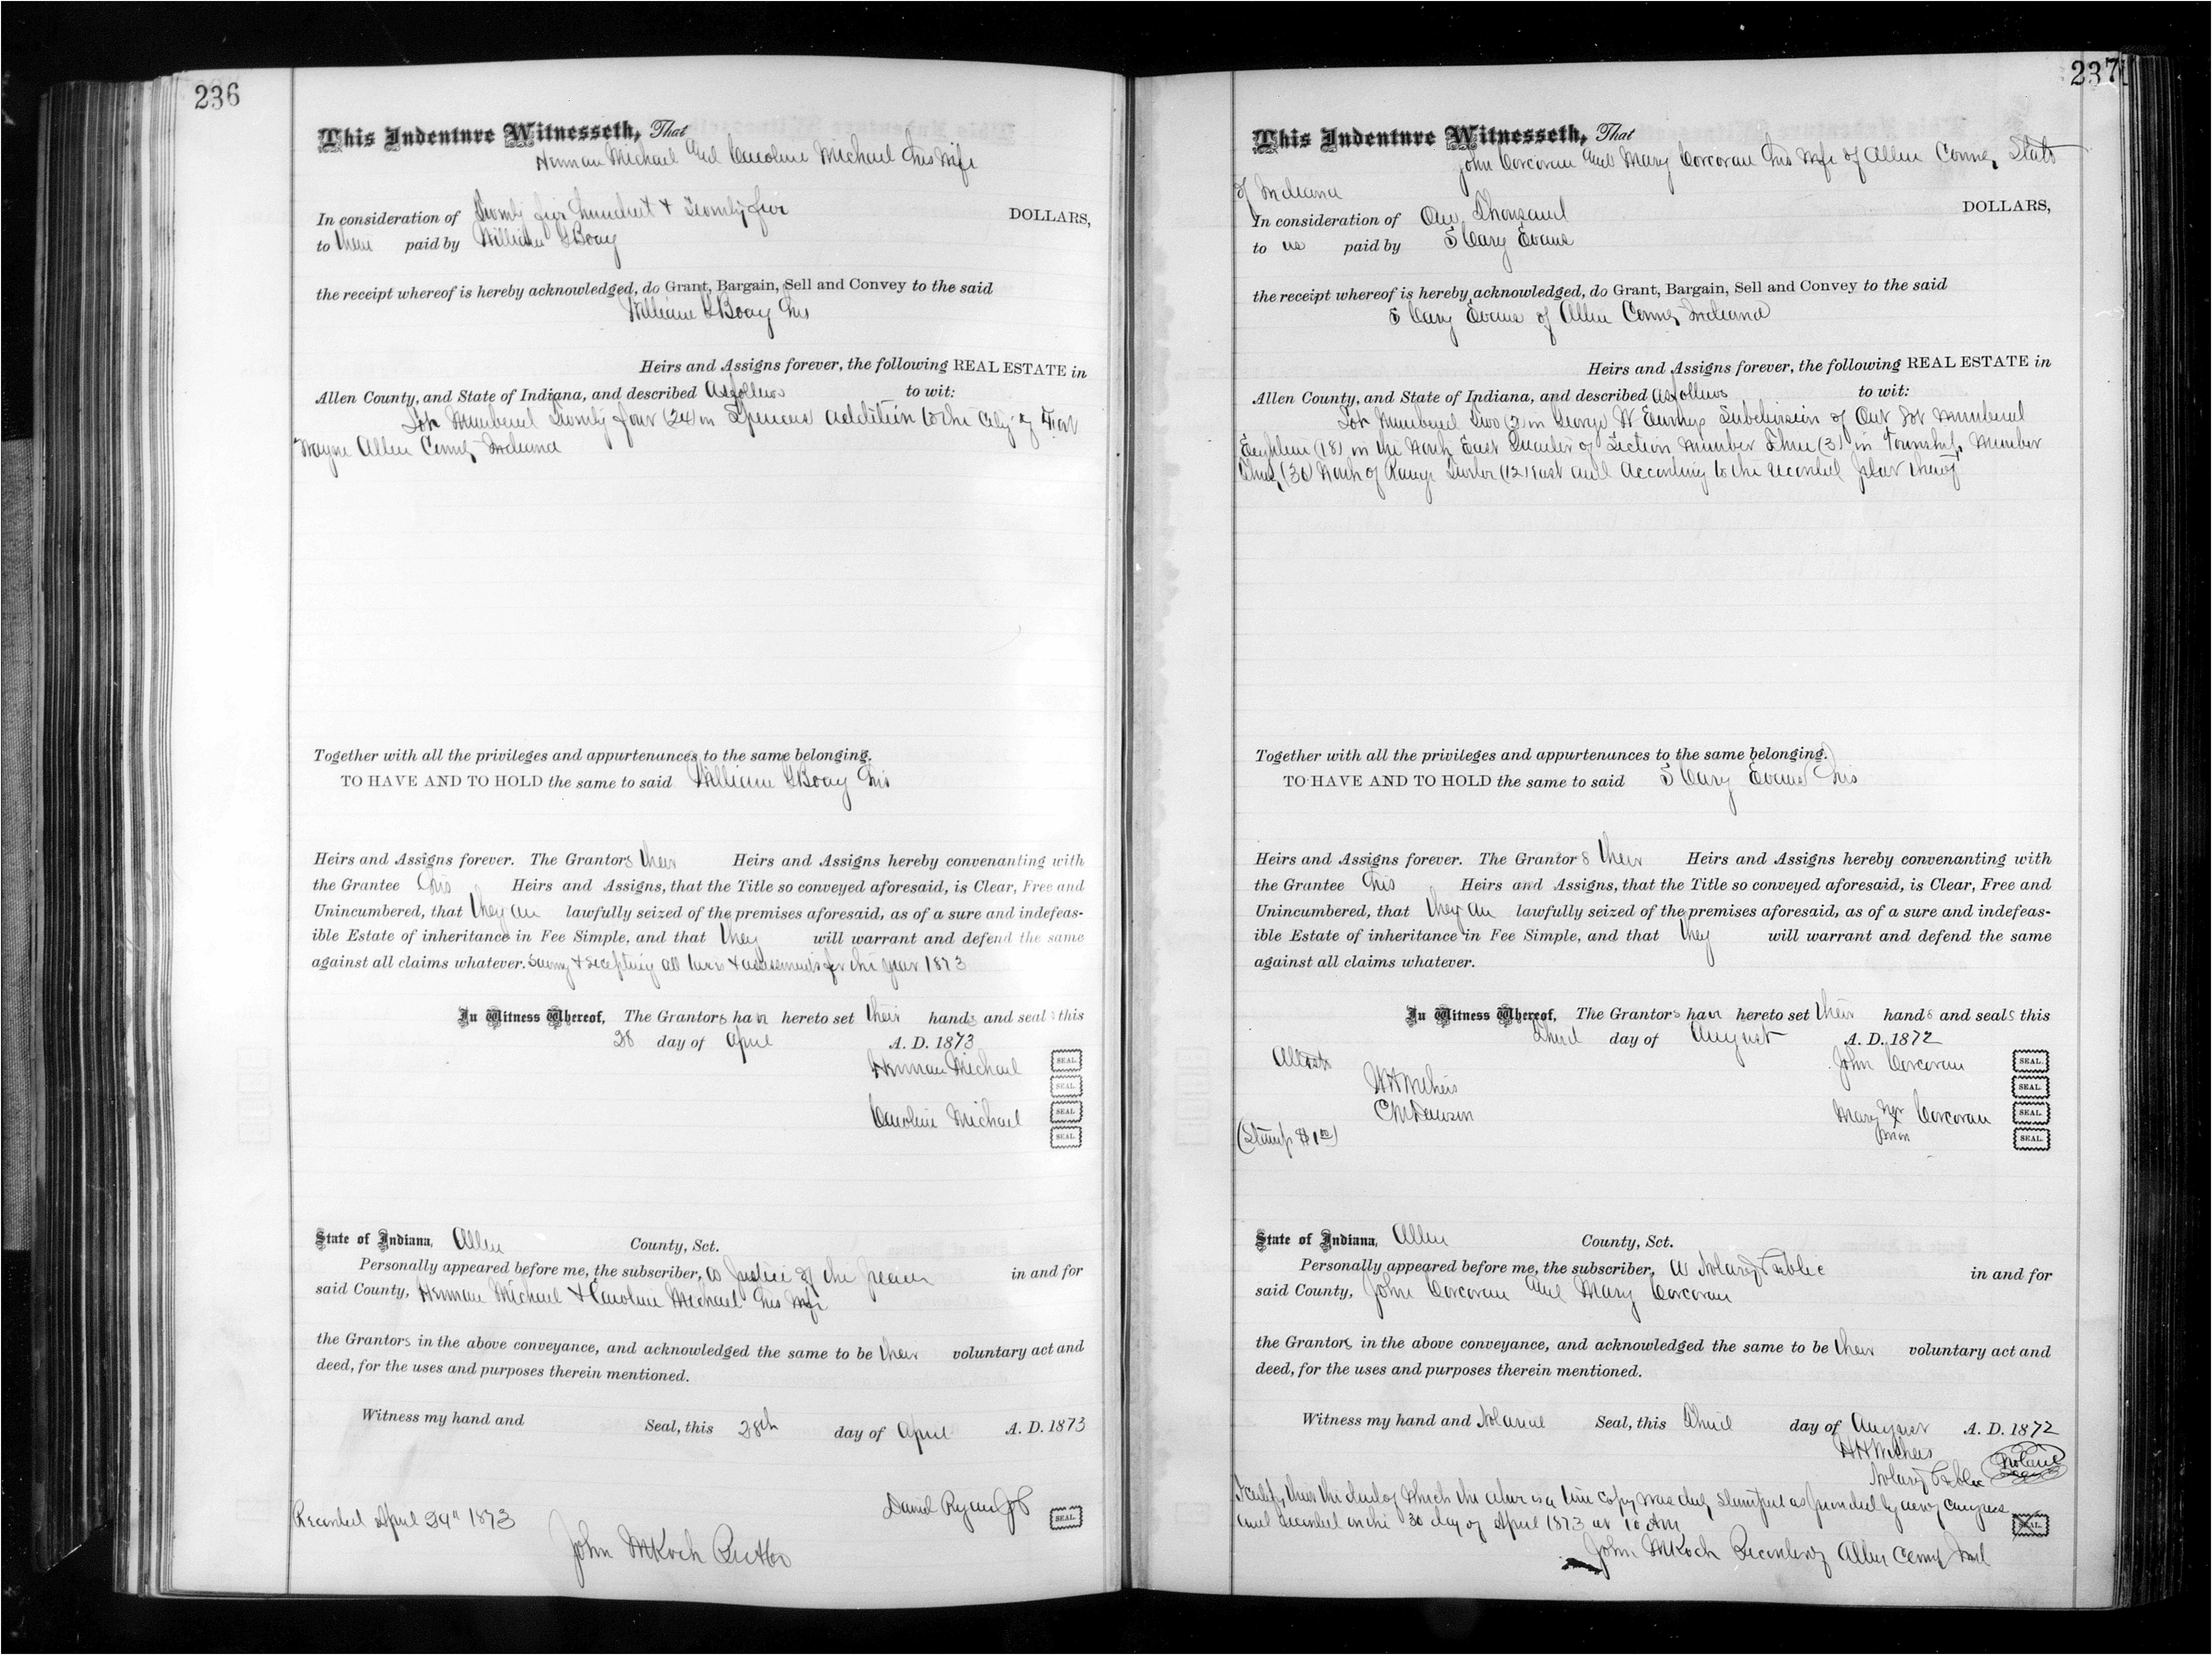 236
This Indenture Witnesseth, That
Herman Michael and Caroline Michael his wife
In consideration of Twenty five hundred & Twenty five DOLLARS,
to them paid by William Boay
the receipt whereof is hereby acknowledged, do Grant, Bargain, Sell and Convey to the said
William Boay his
Heirs and Assigns forever, the following REAL ESTATE in
Allen County, and State of Indiana, and described as follows to wit:
Lot Numbered Twenty four (24) in Spencers addition to the City of Fort
Wayne Allen County Indiana
Together with all the privileges and appurtenances to the same belonging.
TO HAVE AND TO HOLD the same to said William Boay his
Heirs and Assigns forever. The Grantors their Heirs and Assigns hereby convenanting with
the Grantee his Heirs and Assigns, that the Title so conveyed aforesaid, is Clear, Free and
Unincumbered, that they are lawfully seized of the premises aforesaid, as of a sure and indefeas-
ible Estate of inheritance in Fee Simple, and that they will warrant and defend the same
against all claims whatever. Saving & excepting all taxes & assessments for the year 1873
In Witness Whereof, The Grantors have hereto set their hands and seals this
28 day of April A. D. 1873
Herman Michael SEAL.
SEAL.
Caroline Michael SEAL.
SEAL.
State of Indiana, Allen County, Sct.
Personally appeared before me, the subscriber, a Justice of the peace in and for
said County, Herman Michael & Caroline Michael his wife
the Grantors in the above conveyance, and acknowledged the same to be their voluntary act and
deed, for the uses and purposes therein mentioned.
Witness my hand and Seal, this 28th day of April A. D. 1873
David Ryan JP SEAL.
Recorded April 29" 1873
John M Koch
237
This Indenture Witnesseth, That
John Corcoran and Mary Corcoran his wife of Allen County State
of Indiana
In consideration of One Thousand DOLLARS,
to us paid by S Cary Evans
the receipt whereof is hereby acknowledged, do Grant, Bargain, Sell and Convey to the said
S Cary Evans of Allen County Indiana
Heirs and Assigns forever, the following REAL ESTATE in
Allen County, and State of Indiana, and described as follows to wit:
Lot Numbered Two (2) in George W Ewings Subdivision of Out Lot numbered
Eighteen (18) in the North East Quarter of Section number Three (3) in Township Number
(30) North of Range Twelve (12) East and According to the recorded plat thereof
Together with all the privileges and appurtenances to the same belonging.
TO HAVE AND TO HOLD the same to said S Cary Evans his
Heirs and Assigns forever. The Grantors their Heirs and Assigns hereby convenanting with
the Grantee his Heirs and Assigns, that the Title so conveyed aforesaid, is Clear, Free and
Unincumbered, that they are lawfully seized of the premises aforesaid, as of a sure and indefeas-
ible Estate of inheritance in Fee Simple, and that they will warrant and defend the same
against all claims whatever.
In Witness Whereof, The Grantors have hereto set their hands and seals this
Third day of August A. D. 1872
Attest John Corcoran SEAL.
SEAL.
C M Dawson Mary her x Corcoran SEAL.
mark
(Stamp $1 00) SEAL.
State of Indiana, Allen County, Sct.
Personally appeared before me, the subscriber, a Notary Public in and for
said County, John Corcoran and Mary Corcoran
the Grantors in the above conveyance, and acknowledged the same to be their voluntary act and
deed, for the uses and purposes therein mentioned.
Witness my hand and Notarial Seal, this Third day of August A. D. 1872
Notary Public
I certify that the deed of which the above is a true copy was duly stamped as provided by act of congress SEAL.
and Recorded on the 30 day of April 1873 at 10 AM
John M Koch Recorder of Allen County Ind